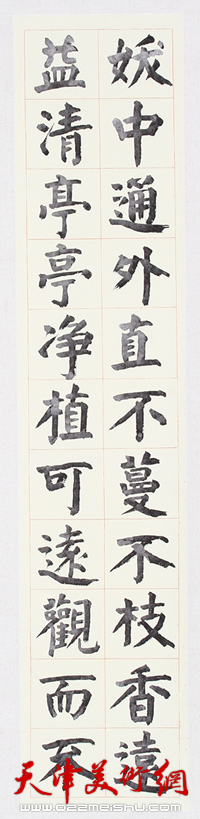 妖中通外直不蔓不枝香遠
益清亭亭净植可遠觀而不
天津美術網
www.022meishu.com